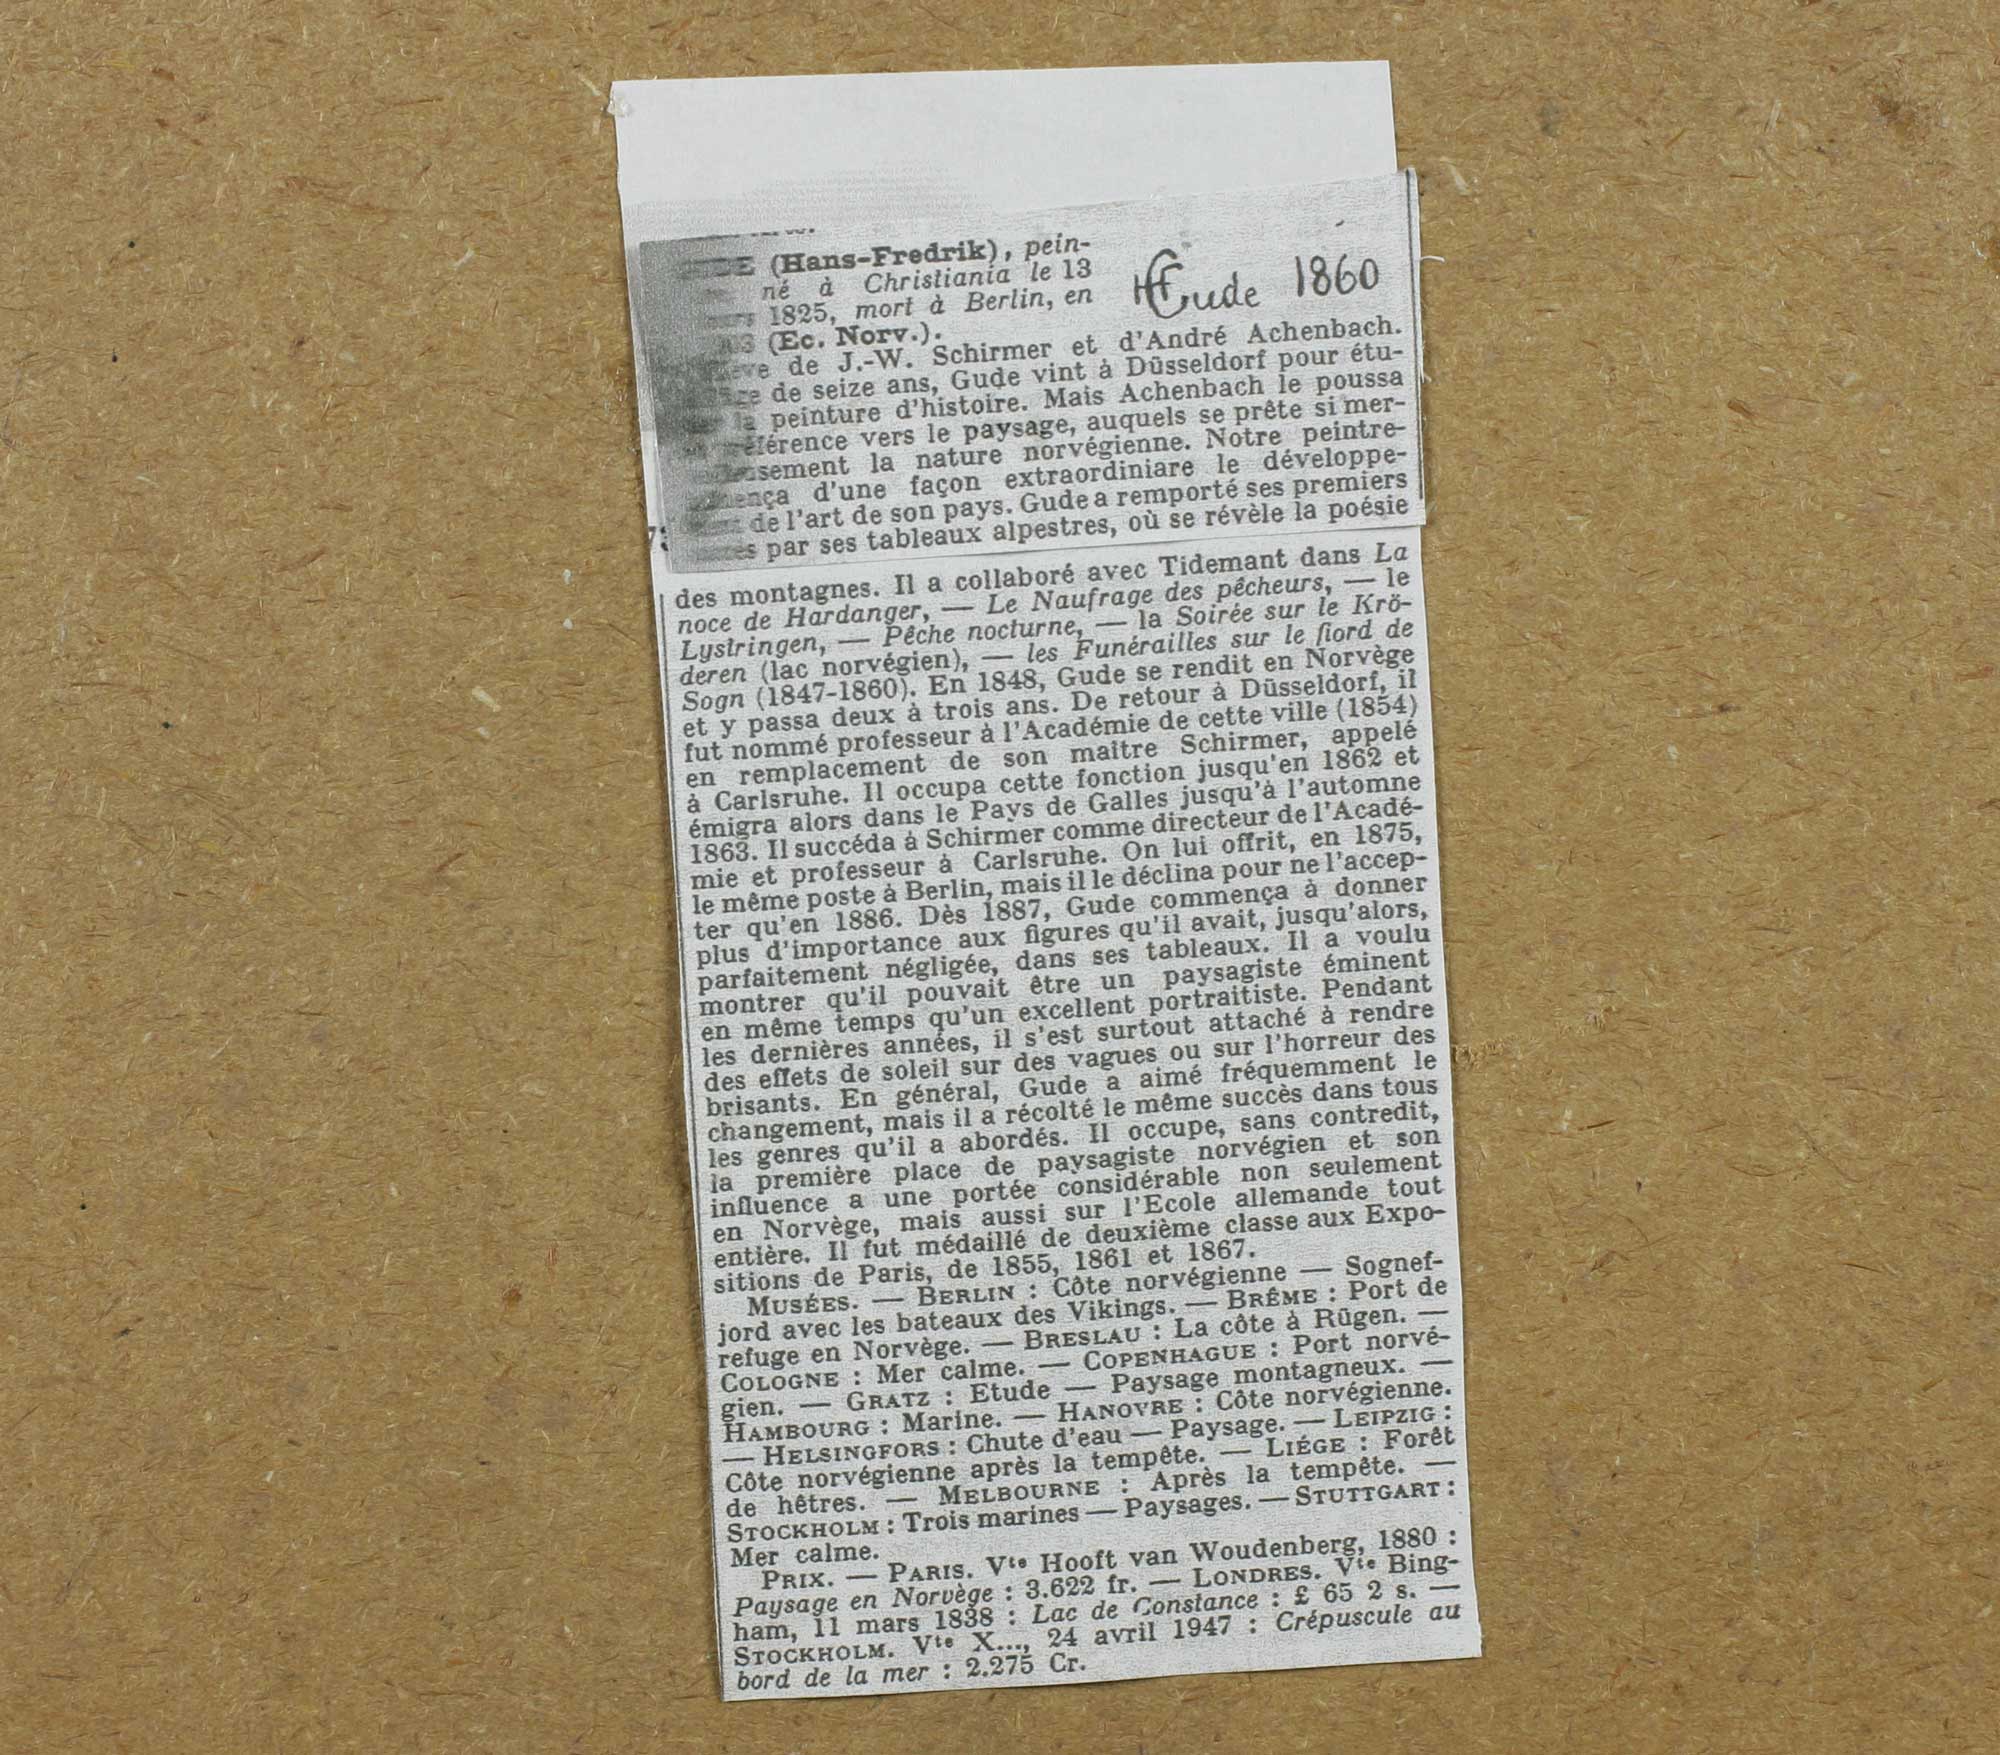 (Hans-Fredrik), pein-
né à Christiania le 13
1825, mort à Berlin, en
(Ec. Norv.).
HFGude 1860
de J.-W. Schirmer et d'André Achenbach.
de seize ans, Gude vint à Düsseldorf pour étu-
la peinture d'histoire. Mais Achenbach le poussa
vers le paysage, auquels se prête si mer-
la nature norvégienne. Notre peintre-
d'une façon extraordiniare le développe-
de l'art de son pays. Gude a remporté ses premiers
par ses tableaux alpestres, où se révèle la poésie
des montagnes. Il a collaboré avec Tidemant dans La
noce de Hardanger, — Le Naufrage des pêcheurs, — le
Lystringen, — Pêche nocturne, — la Soirée sur le Krö-
deren (lac norvégien), — les Funérailles sur le fiord de
Sogn (1847-1860). En 1848, Gude se rendit en Norvège
et y passa deux à trois ans. De retour à Düsseldorf, il
fut nommé professeur à l'Académie de cette ville (1854)
en remplacement de son maître Schirmer, appelé
à Carlsruhe. Il occupa cette fonction jusqu'en 1862 et
émigra alors dans le Pays de Galles jusqu'à l'automne
1863. Il succéda à Schirmer comme directeur de l'Acadé-
mie et professeur à Carlsruhe. On lui offrit, en 1875,
le même poste à Berlin, mais il le déclina pour ne l'accep-
ter qu'en 1886. Dès 1887, Gude commença à donner
plus d'importance aux figures qu'il avait, jusqu'alors,
parfaitement négligée, dans ses tableaux. Il a voulu
montrer qu'il pouvait être un paysagiste éminent
en même temps qu'un excellent portraitiste. Pendant
les dernières années, il s'est surtout attaché à rendre
des effets de soleil sur des vagues ou sur l'horreur des
brisants. En général, Gude a aimé fréquemment le
changement, mais il a récolté le même succès dans tous
les genres qu'il a abordés. Il occupe, sans contredit,
la première place de paysagiste norvégien et son
influence a une portée considérable non seulement
en Norvège, mais aussi sur l'Ecole allemande tout
entière. Il fut médaillé de deuxième classe aux Expo-
sitions de Paris, de 1855, 1861 et 1867.
MUSÉES. — BERLIN : Côte norvégienne — Sognef-
jord avec les bateaux des Vikings. — BRÊME : Port de
refuge en Norvège. — BRESLAU : La côte à Rügen. —
COLOGNE : Mer calme. — COPENHAGUE : Port norvé-
gien. — GRATZ : Etude — Paysage montagneux. —
HAMBOURG : Marine. — HANOVRE : Côte norvégienne.
— HELSINGFORS : Chute d'eau — Paysage. — LEIPZIG :
Côte norvégienne après la tempête. — LIÉGE : Forêt
de hêtres. — MELBOURNE : Après la tempête. —
STOCKHOLM : Trois marines — Paysages. — STUTTGART :
Mer calme.
PRIX. — PARIS. Vte Hooft van Woudenberg, 1880 :
Paysage en Norvège : 3.622 fr. — LONDRES. Vte Bing-
ham, 11 mars 1838 : Lac de Constance : £ 65 2 s. —
STOCKHOLM. Vte X..., 24 avril 1947 : Crépuscule au
bord de la mer : 2.275 Cr.